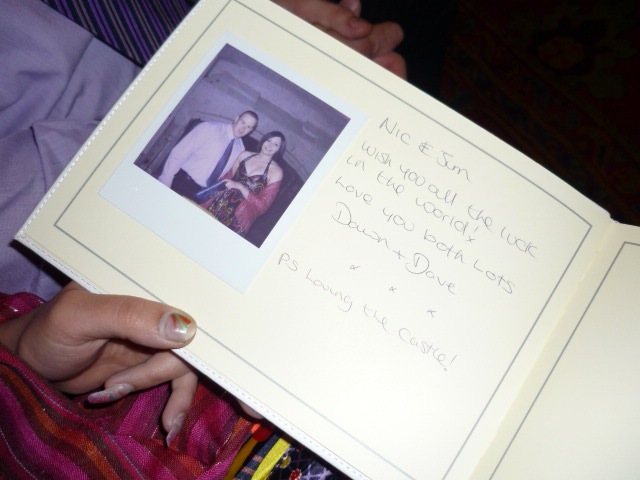 Nic & Jim
wish you all the luck
in the world! x
Love you both Lots
Dawn + Dave
x x x
PS Loving the Castle!